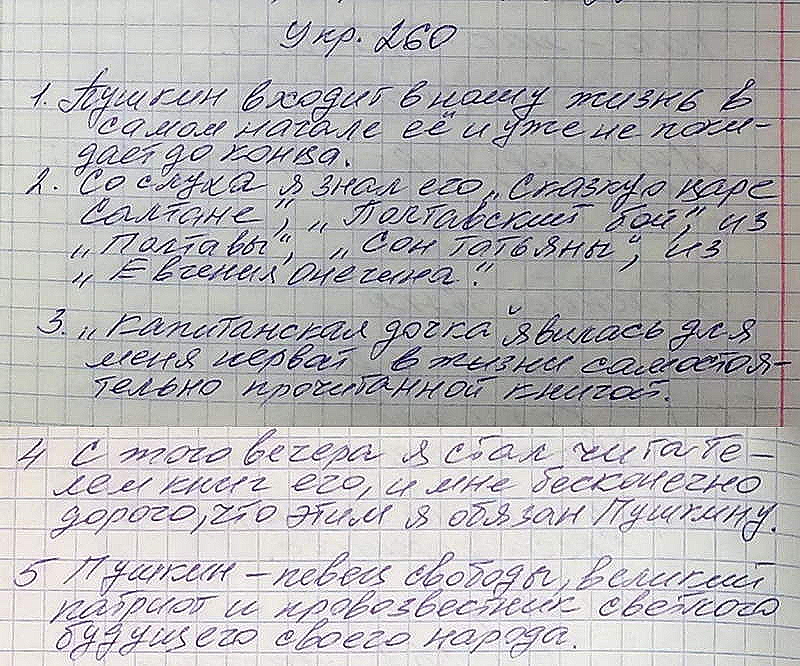 Упр. 260
1. Пушкин входит в нашу жизнь в
самом начале её и уже не поки-
дает до конца.
2. Со слуха я знал его „Сказку о царе
Салтане", „Полтавский бой", из
„Полтавы", „Сон Татьяны", из
„Евгения Онегина".
3. „Капитанская дочка" явилась для
меня первой в жизни самостоя-
тельно прочитанной книгой.
4 С того вечера я стал читате-
лем книг его, и мне бесконечно
дорого, что этим я обязан Пушкину.
5 Пушкин – певец свободы, великий
патриот и провозвестник светлого
будущего своего народа.